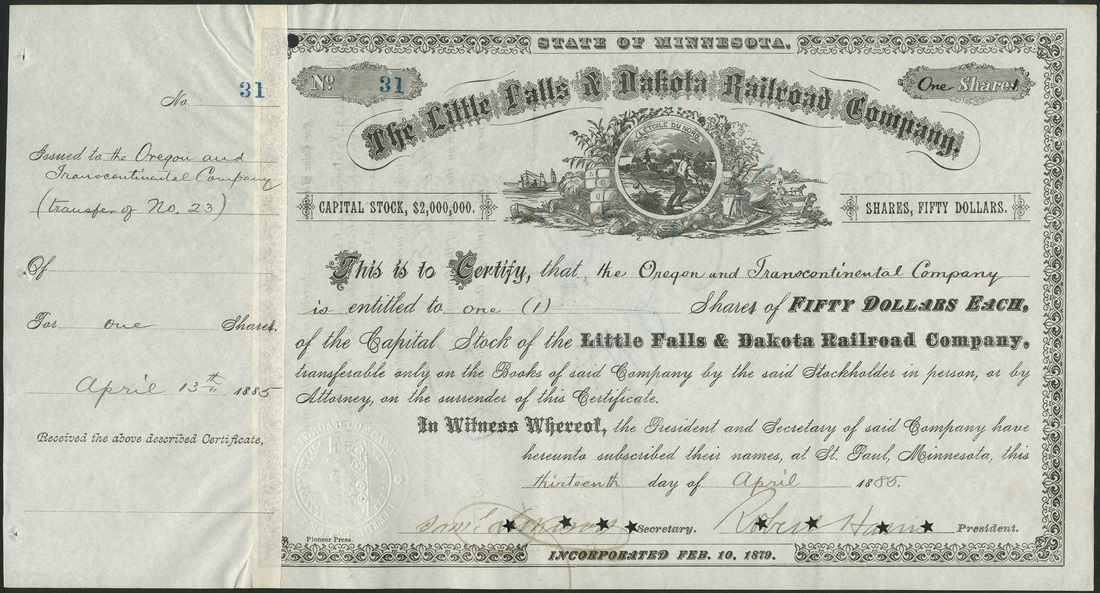 No. 31
Issued to the Oregon and
Transcontinental Company
(transfer of No. 23)
Of
For one Shares.
April 13th 1885
Received the above described Certificate,
STATE OF MINNESOTA.
No 31
One Share
The Little Falls & Dakota Railroad Company.
L'ETOILE DU NORD
CAPITAL STOCK, $2,000,000.
SHARES, FIFTY DOLLARS.
This is to Certify, that the Oregon and Transcontinental Company
is entitled to one (1) Shares of FIFTY DOLLARS EACH,
of the Capital Stock of the Little Falls & Dakota Railroad Company,
transferable only on the Books of said Company by the said Stockholder in person, or by
Attorney, on the surrender of this Certificate.
In Witness Whereof, the President and Secretary of said Company have
hereunto subscribed their names, at St. Paul, Minnesota, this
thirteenth day of April 1885.
Secretary. Robert Harris President.
Pioneer Press.
INCORPORATED FEB. 10, 1879.